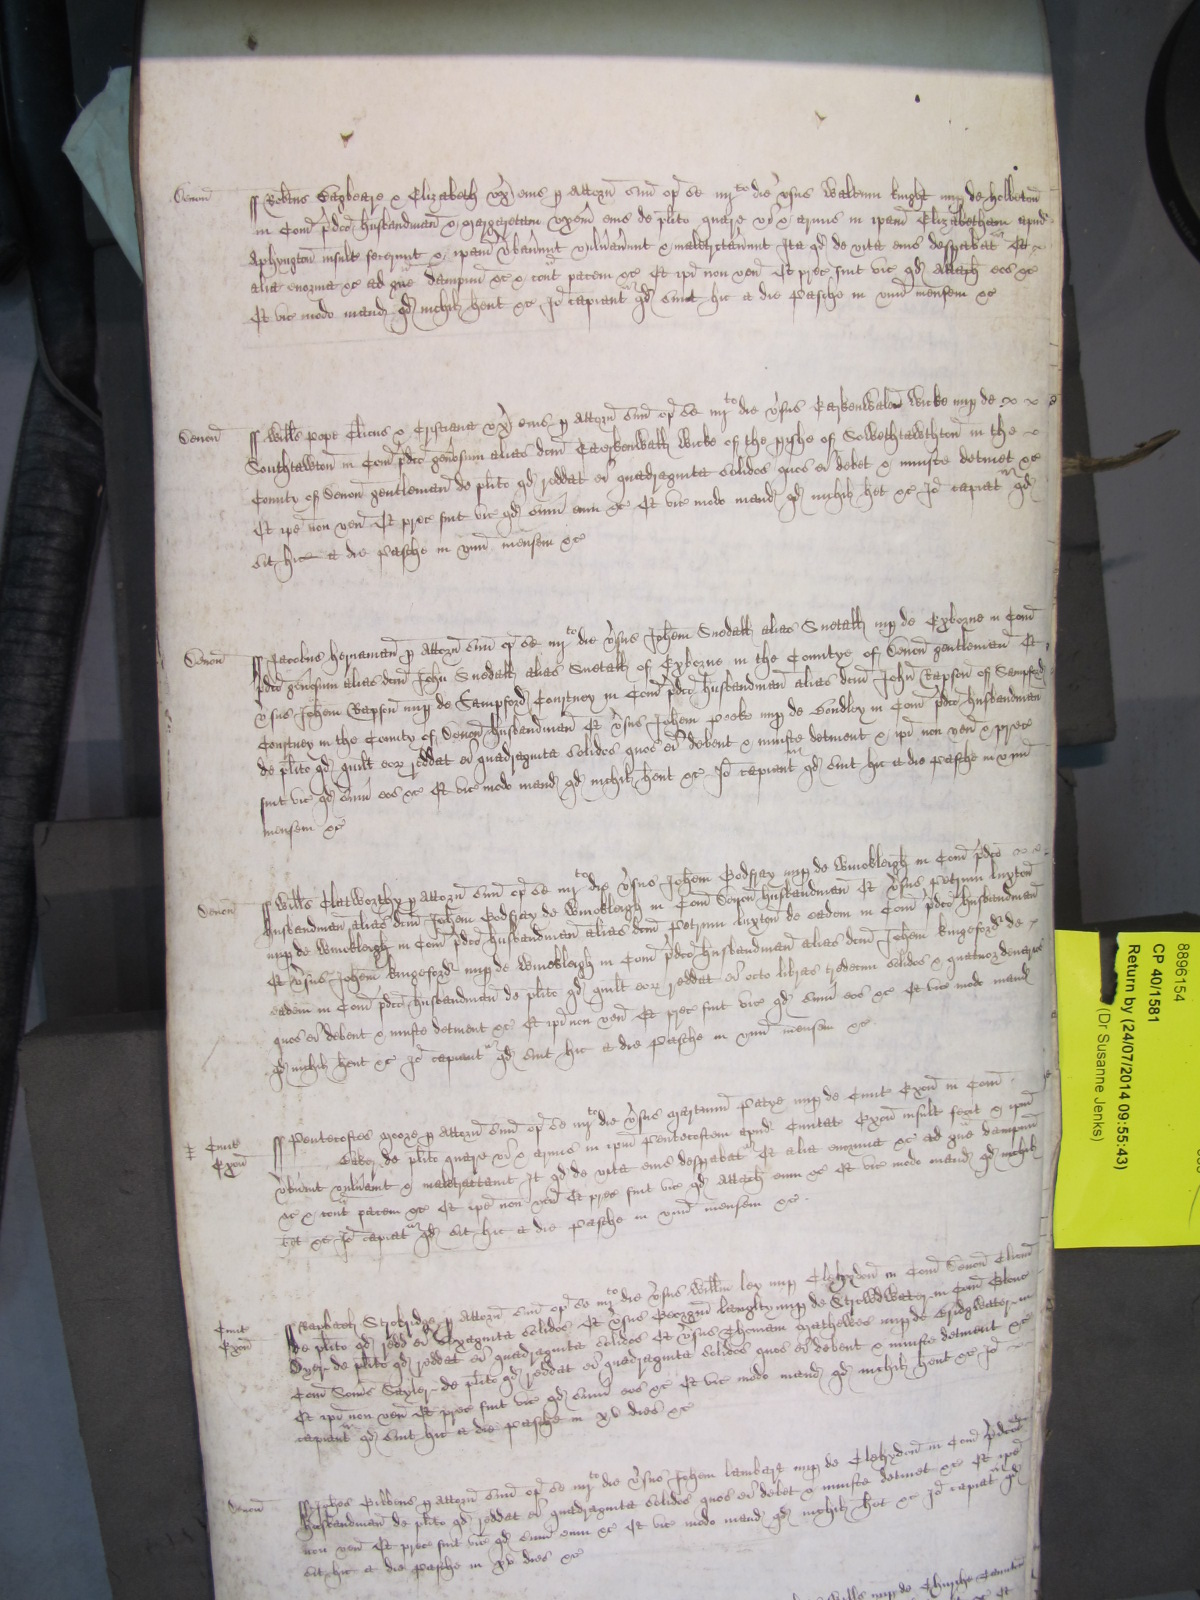 Devon
Robtus Saybeare & Elizabeth ux eius p attorn suu op se iiij to die vsus Waltum knyght nup de holbeton
in Com pdco husbandman & Margaretam uxem eius de plito quare vi & armis in ipam Elizabetham apud
Aphyngton insult fecerunt & ipam vbaunt vulnaunt & maletractaunt Ita qd de vita eius despabat Et
alia enormia &c ad gue dampnu &c & cont pacem &c Et ipi non ven Et prec fuit vic qd attach eos &c
Et vic modo mand qd nichil hent &c Jo capiant qd sint hic a die Pasche in vnu mensem &c
Devon
Wills Pope Clicus & Cristiana ux eius p attorn suu op se iiij to die vsus Wicke nup de
Southtawton in Com pdco genosum alias dcm Wicke of the pyshe of in the
County of Devon gentleman de plito qd reddat ei quadraginta solidos quos ei debet & iniuste detinet &c
Et ipe non ven Et prec fuit vic qd sum eum &c Et vic modo mand qd nichil het &c Jo capiat qd
sit hic a die Pasche in vnu mensem &c
Devon
Jacobus p attorn suu op se iiij to die vsus Johem Snedall alias Suetall nup de Exborne in Com
pdco genosum alias dcm John Snedall alias Suetall of Exborne in the Countye of Devon gentleman Et
vsus Johem Rapson nup de Sampford Courtney in Com pdco husbandman alias dcm John Rapson of Sampford
Courtney in the County of Devon husbandman Et vsus Johem Peeke nup de Bondley in Com pdco husbandman
de plito qd quilt eor reddat ei quadraginta solidos quos ei debent & iniuste detinent & ipi non ven & prec
fuit vic qd sum eos &c Et vic modo mand qd nichil hent &c Jo capiant qd sint hic a die Pasche in vnu
mensem &c
Devon
Wills Clatworthy p attorn suu op se iiij to die vsus Johem Godfray nup de Winkleigh in Com pdco
husbandman alias dcm Johem Godfray de Winkleigh in Com Devon husbandman Et vsus Petrum luxton
nup de Winkleigh in Com pdco husbandman alias dcm Petrum luxton de eadem in Com pdco husbandman
Et vsus Johem kingeford nup de Winkleigh in Com pdco husbandman alias dcm Johem kingeford de
eadem in Com pdco husbandman de plito qd quilt eor reddat ei octo libras tredecim solidos & quatuor denarios
quos ei debent & iniuste detinent &c Et ipi non ven Et prec fuit vic qd sum eos &c Et vic modo mand
qd nichil hent &c Jo capiant qd sint hic a die Pasche in vnu mensem &c
Ciuit
Exon
Pentecostes Moore p attorn suu op se iiij to die vsus Martinum Patye nup de Ciuit Exon in Com
de plito quare vi & armis in ipm Pentecostem apud Ciuitate Exon insult fecit & ipm
vbauit vulnauit & maletractauit It qd de vita eius despabat Et alia enormia &c ad gue dampnu
&c & cont pacem &c Et ipe non ven Et prec fuit vic qd attach eum &c Et vic modo mand qd nichil
het &c Jo capiat qd sit hic a die Pasche in vnu mensem &c
Ciuit
Exon
p attorn suu op se iiij to die vsus Willm ley nup Clehydon in Com Devon Clicum
de plito qd redd ei sexaginta solidos Et vsus Georgium langley nup de Strowdwater in Com Glouc
Dyer de plito qd reddat ei quadraginta solidos Et vsus Thomam Mathewes nup de Bridgwater in
Com Soms Sayler de plito qd reddat ei quadraginta solidos quos ei debent & iniuste detinent &c
Et ipi non ven Et prec fuit vic qd sum eos &c Et vic modo mand qd nichil hent &c Jo
capiant qd sint hic a die Pasche in xv dies &c
Devon
Gibbens p attorn suu op se iiij to die vsus Johem lambart nup de Clehydon in Com pdco
husbandman de plito qd reddat ei quadraginta solidos quos ei debet & iniuste detinet &c Et ipe
non ven Et prec fuit vic qd sum eum &c Et vic modo mand qd nichil het &c Jo capiat qd
sit hic a die Pasche in xv dies &c
8896154
CP 40/1581
Return by (24/07/2014 09:55:43)
(Dr Susanne Jenks)